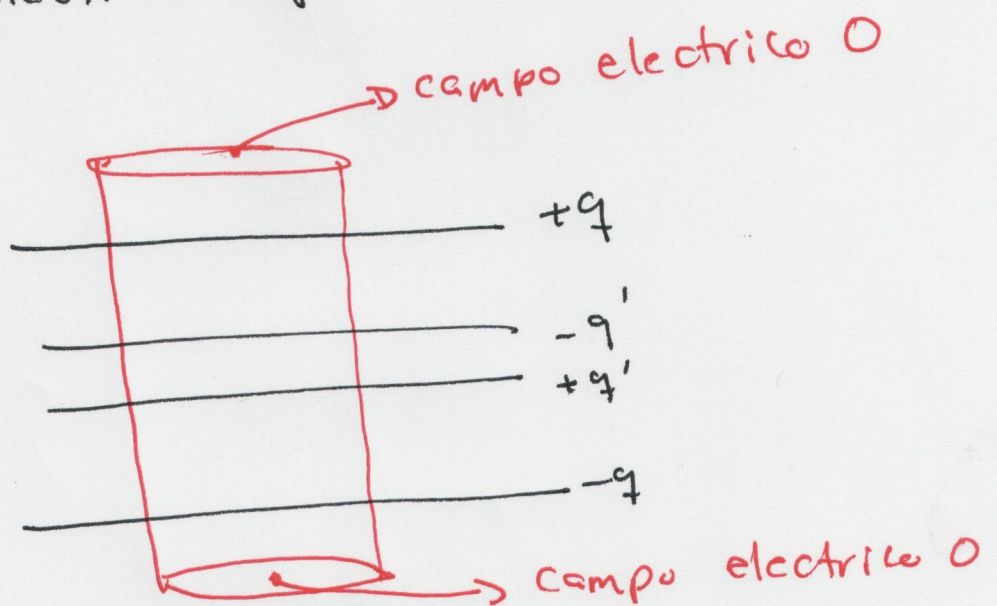 campo electrico 0
+q
-q'
+q'
-q
campo electrico 0